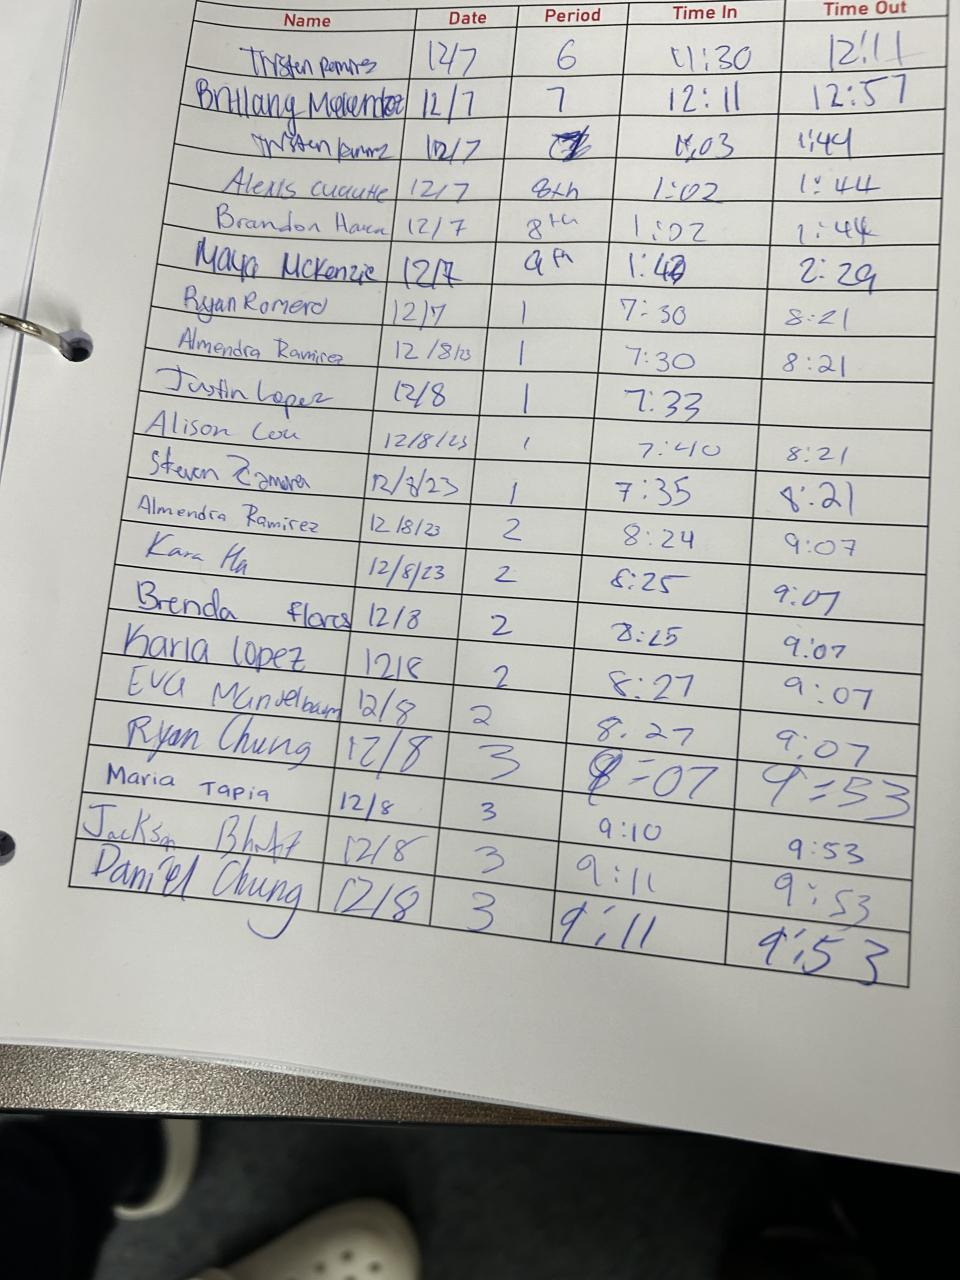 Name Date Period Time In Time Out
Tristen Ramirez 12/7 6 11:30 12:11
12/7 7 12:11 12:57
Tristen 12/7 1:03 1:44
Alexis cuautle 12/7 8th 1:02 1:44
Brandon 12/7 8th 1:02 1:44
Maya McKenzie 12/7 9th 2:29
Ryan Romero 12/7 1 7:30 8:21
Almendra Ramirez 12/8/23 1 7:30 8:21
Justin Lopez 12/8 1 7:33
Alison Cou 12/8/23 1 7:40 8:21
Steven Zamora 12/8/23 1 7:35 8:21
Almendra Ramirez 12/8/23 2 8:24 9:07
Kara Ha 12/8/23 2 8:25 9:07
Brenda flores 12/8 2 8:25 9:07
Karla lopez 12/8 2 8:27 9:07
Eva Mandelbaum 12/8 2 8:27 9:07
Ryan Chung 12/8 3 9:53
Maria Tapia 12/8 3 9:10 9:53
Jackson Bhatt 12/8 3 9:11 9:53
Daniel Chung 12/8 3 9:11 9:53